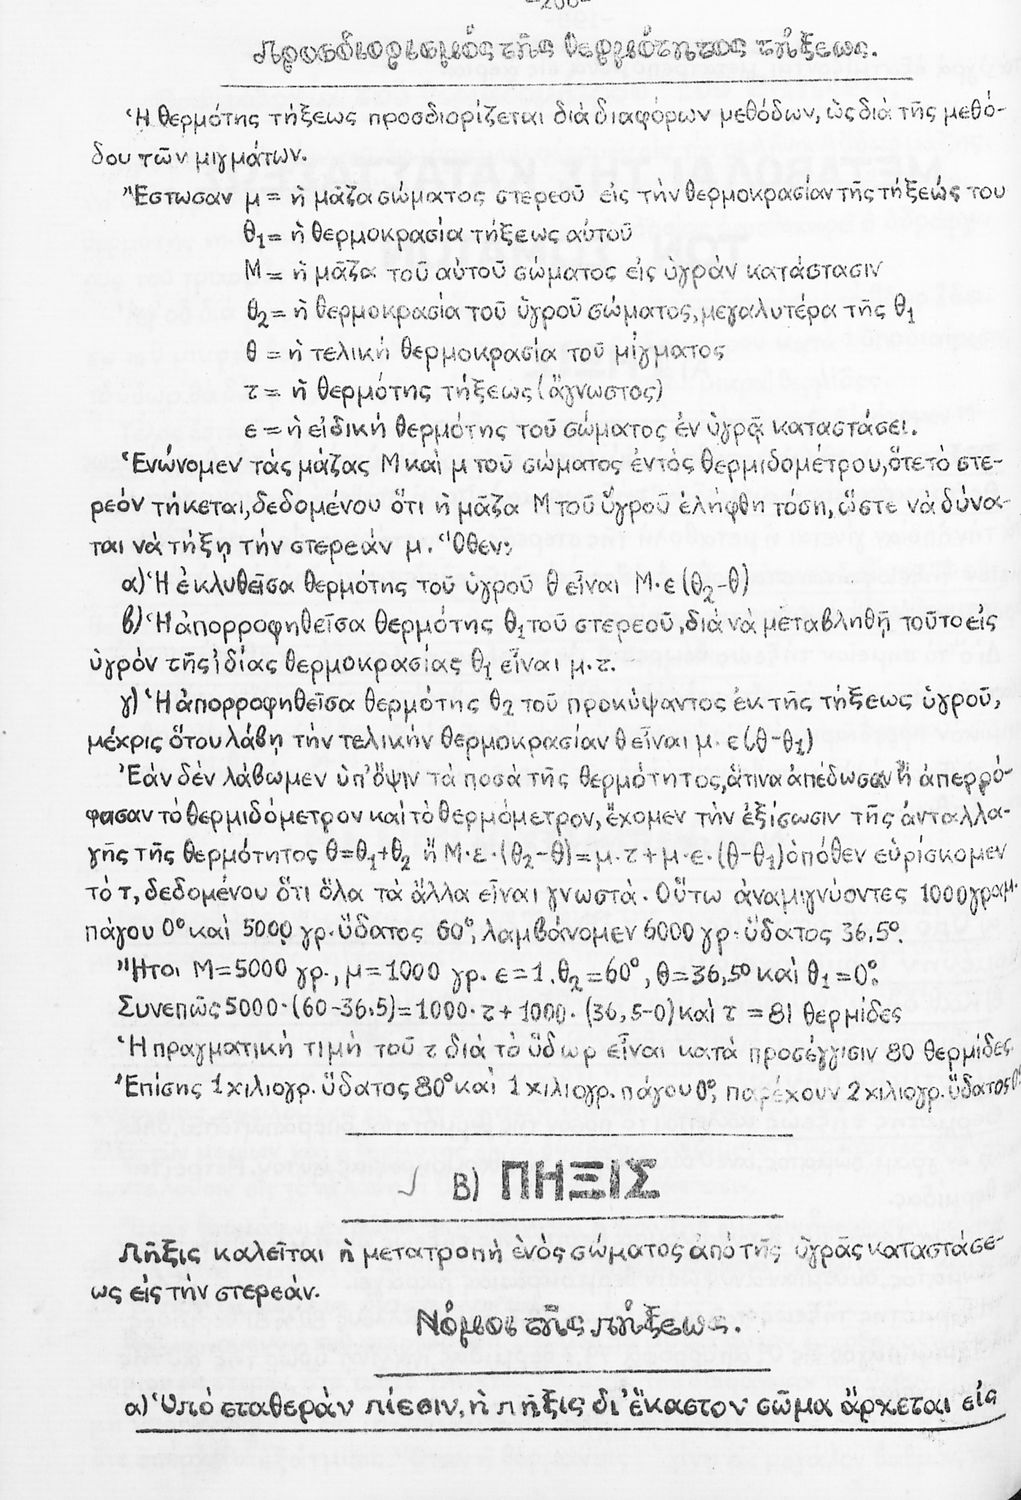 -206-
Προσδιορισμός τῆς θερμότητος τήξεως.
Ἡ θερμότης τήξεως προσδιορίζεται διά διαφόρων μεθόδων, ὡς διά τῆς μεθό-
δου τῶν μιγμάτων.
Ἔστωσαν μ = ἡ μᾶζα σώματος στερεοῦ εἰς τήν θερμοκρασίαν τῆς τήξεώς του
θ₁ = ἡ θερμοκρασία τήξεως αὐτοῦ
Μ = ἡ μᾶζα τοῦ αὐτοῦ σώματος εἰς ὑγράν κατάστασιν
θ₂ = ἡ θερμοκρασία τοῦ ὑγροῦ σώματος, μεγαλυτέρα τῆς θ₁
θ = ἡ τελική θερμοκρασία τοῦ μίγματος
τ = ἡ θερμότης τήξεως (ἄγνωστος)
ε = ἡ εἰδική θερμότης τοῦ σώματος ἐν ὑγρᾷ καταστάσει.
Ἑνώνομεν τάς μάζας Μ καί μ τοῦ σώματος ἐντός θερμιδομέτρου, ὅτε τό στε-
ρεόν τήκεται, δεδομένου ὅτι ἡ μᾶζα Μ τοῦ ὑγροῦ ἐλήφθη τόση, ὥστε νά δύνα-
ται νά τήξῃ τήν στερεάν μ. Ὅθεν:
α) Ἡ ἐκλυθεῖσα θερμότης τοῦ ὑγροῦ θ εἶναι Μ·ε (θ₂-θ)
β) Ἡ ἀπορροφηθεῖσα θερμότης θ₁ τοῦ στερεοῦ, διά νά μεταβληθῇ τοῦτο εἰς
ὑγρόν τῆς ἰδίας θερμοκρασίας θ₁ εἶναι μ.τ.
γ) Ἡ ἀπορροφηθεῖσα θερμότης θ₂ τοῦ προκύψαντος ἐκ τῆς τήξεως ὑγροῦ,
μέχρις ὅτου λάβῃ τήν τελικήν θερμοκρασίαν θ εἶναι μ. ε (θ-θ₁)
Ἐάν δέν λάβωμεν ὑπ' ὄψιν τά ποσά τῆς θερμότητος, ἅτινα ἀπέδωσαν ἤ ἀπερρό-
φησαν τό θερμιδόμετρον καί τό θερμόμετρον, ἔχομεν τήν ἐξίσωσιν τῆς ἀνταλλα-
γῆς τῆς θερμότητος θ=θ₁+θ₂ ἤ Μ·ε·(θ₂-θ)=μ·τ+μ·ε·(θ-θ₁) ὁπόθεν εὑρίσκομεν
τό τ, δεδομένου ὅτι ὅλα τά ἄλλα εἶναι γνωστά. Οὕτω ἀναμιγνύοντες 1000 γραμ.
πάγου 0° καί 5000 γρ. ὕδατος 60°, λαμβάνομεν 6000 γρ. ὕδατος 36,5°.
Ἤτοι Μ=5000 γρ., μ=1000 γρ. ε=1. θ₂=60°, θ=36,5° καί θ₁=0°.
Συνεπῶς 5000·(60-36,5)=1000·τ+1000·(36,5-0) καί τ = 81 θερμίδες
Ἡ πραγματική τιμή τοῦ τ διά τό ὕδωρ εἶναι κατά προσέγγισιν 80 θερμίδες.
Ἐπίσης 1 χιλιογρ. ὕδατος 80° καί 1 χιλιογρ. πάγου 0°, παρέχουν 2 χιλιογρ. ὕδατος 0°
Β) ΠΗΞΙΣ
Πῆξις καλεῖται ἡ μετατροπή ἑνός σώματος ἀπό τῆς ὑγρᾶς καταστάσε-
ως εἰς τήν στερεάν.
Νόμοι τῆς πήξεως.
α) Ὑπό σταθεράν πίεσιν, ἡ πῆξις δι' ἕκαστον σῶμα ἄρχεται εἰς